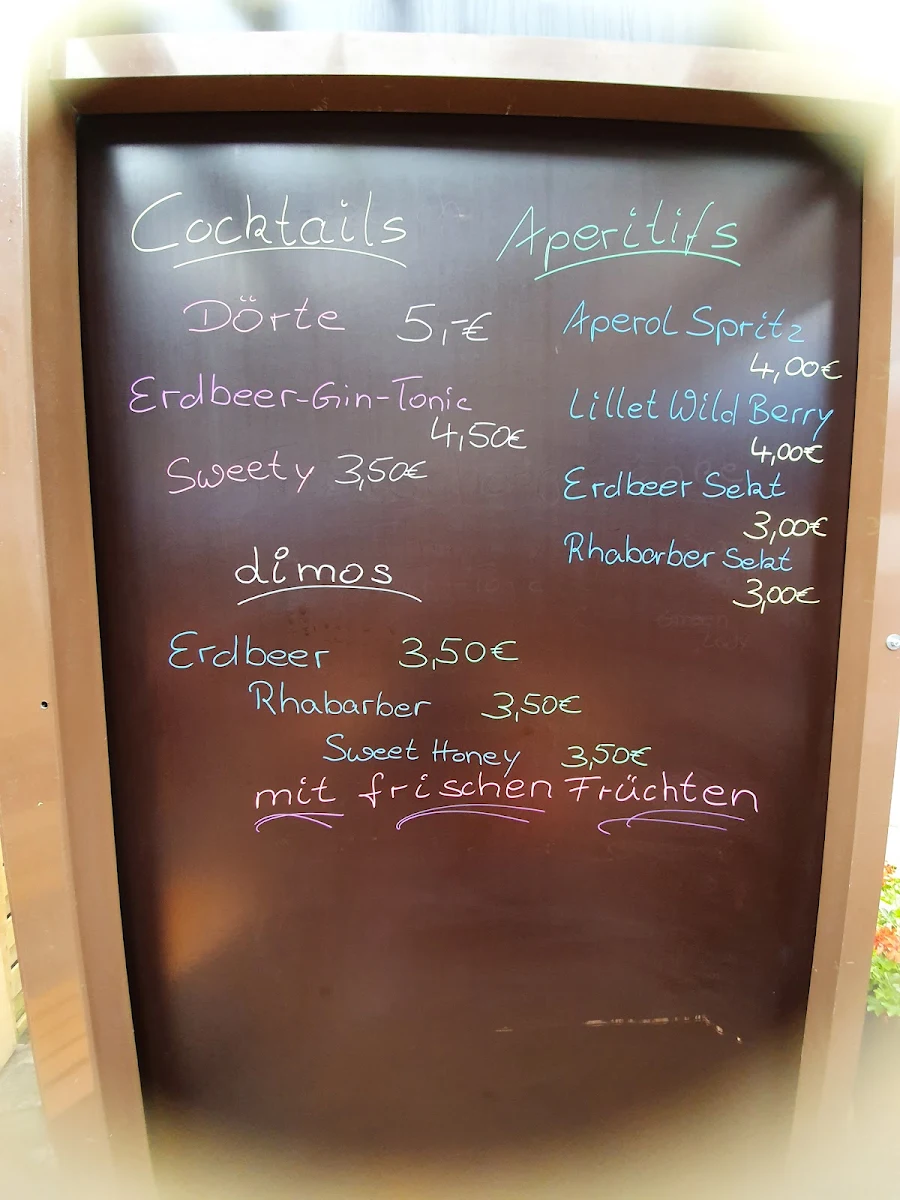 Cocktails
Dörte 5,-€
Erdbeer-Gin-Tonic
4,50€
Sweety 3,50€
dimos
Erdbeer 3,50€
Rhabarber 3,50€
Sweet Honey 3,50€
mit frischen Früchten
Aperitifs
Aperol Spritz
4,00€
Lillet Wild Berry
4,00€
Erdbeer Sekt
3,00€
Rhabarber Sekt
3,00€